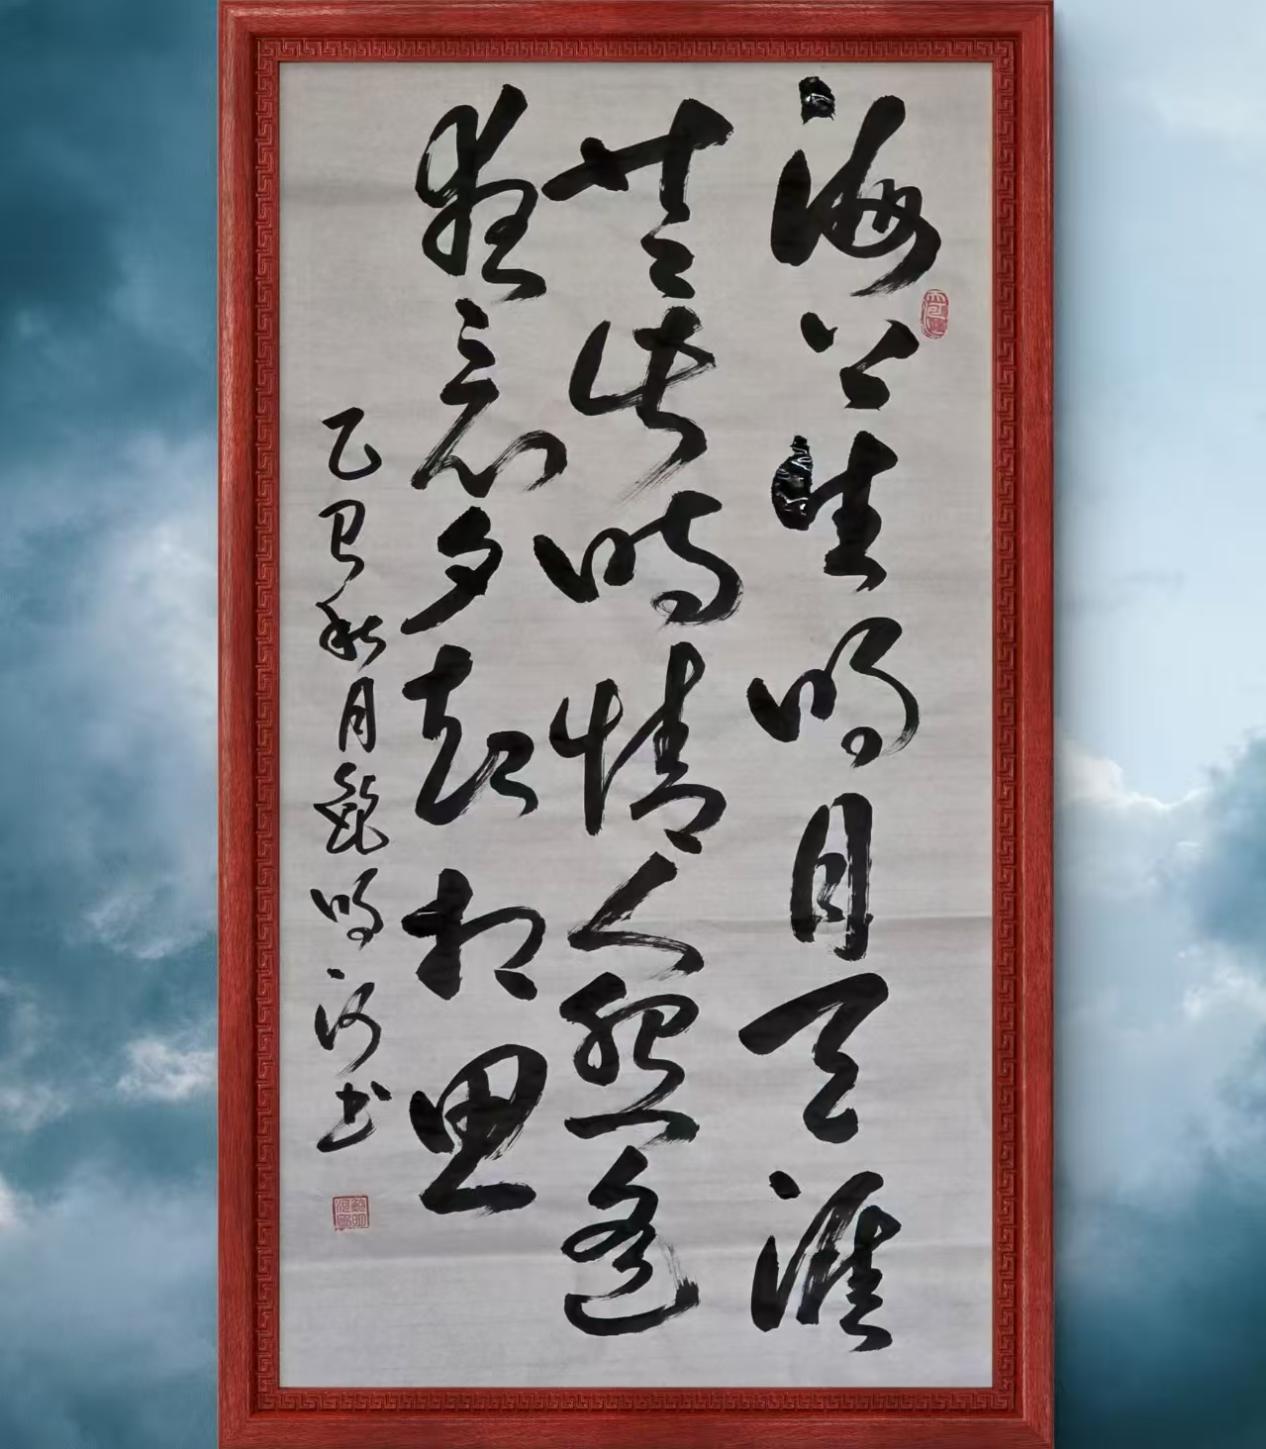 海上生明月天涯
共此时情人怨遥
夜竟夕起相思
乙巳秋月明河书